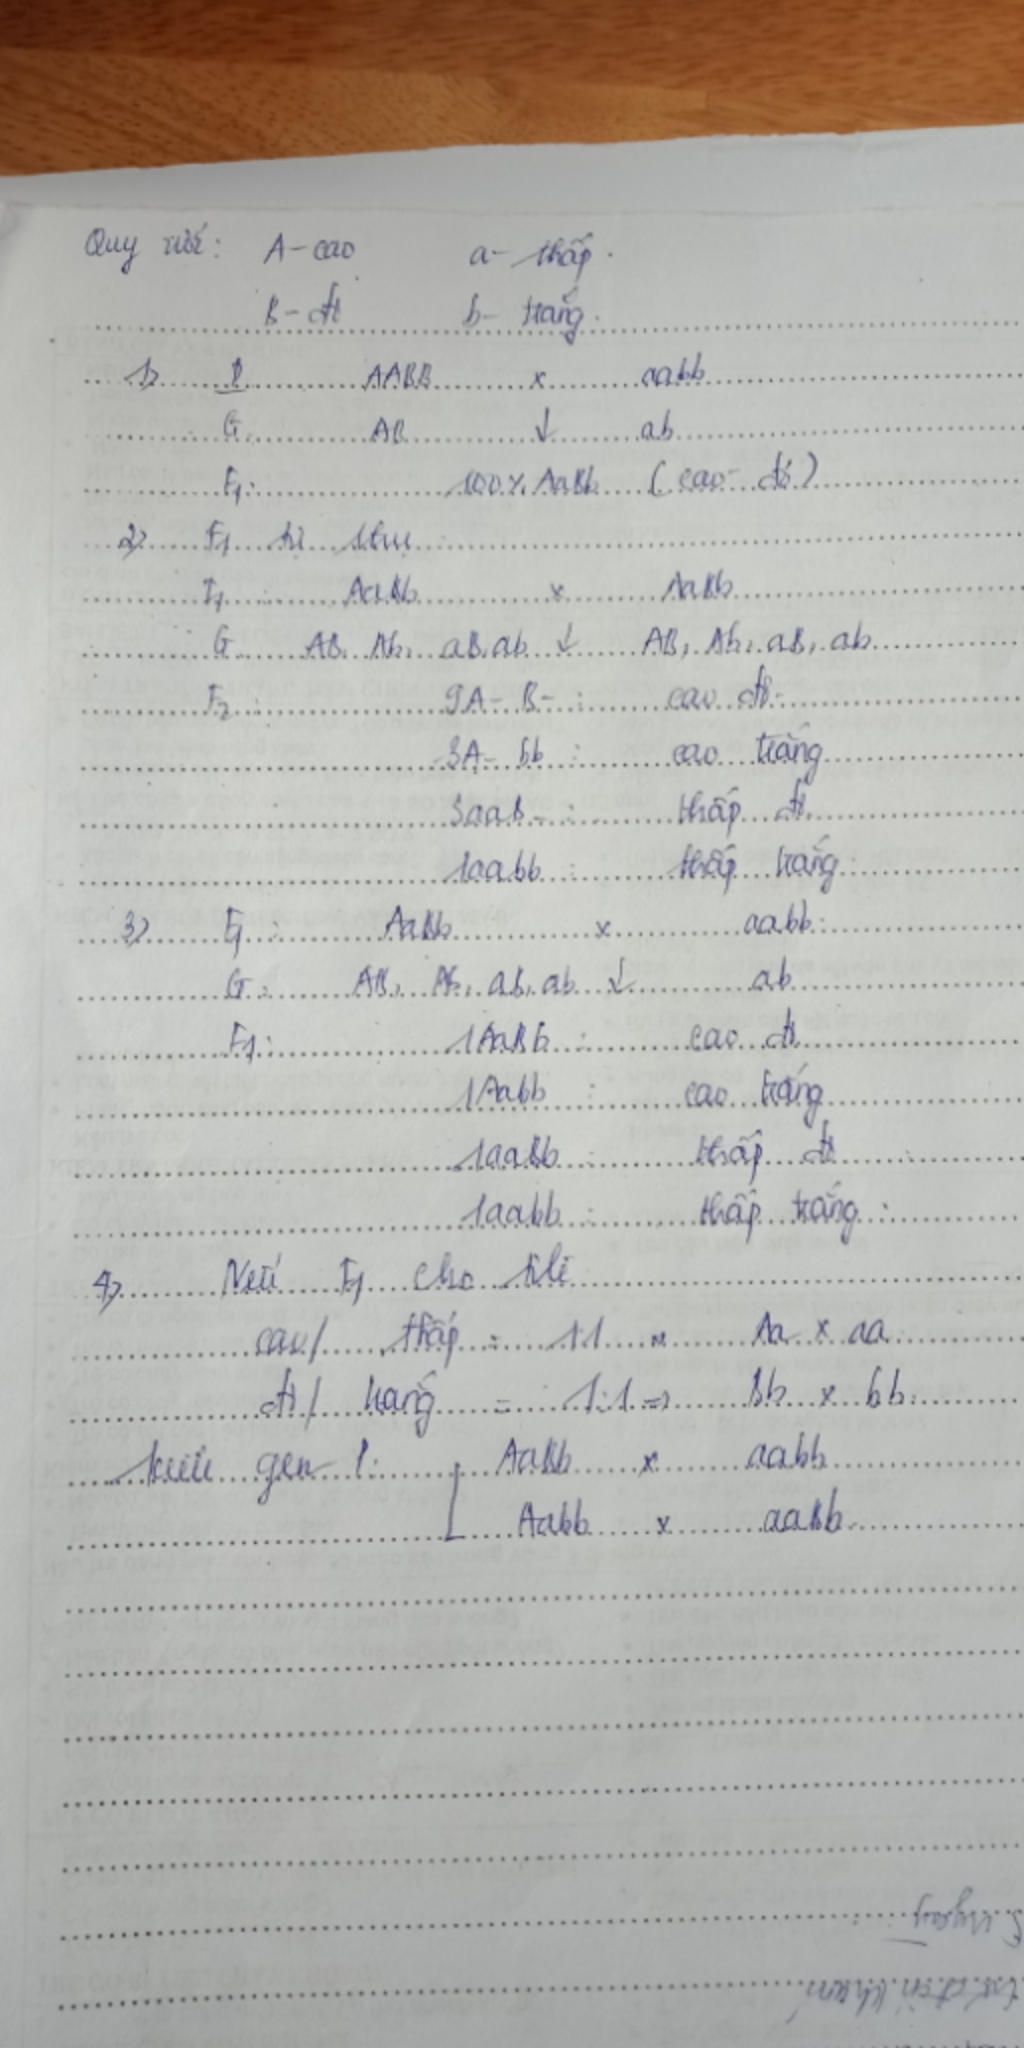 Quy ước: A - cao a - thấp.
B - đỏ b - trắng.
1) P AABB x aabb
G: AB ↓ ab
F1: 100% AaBb (cao - đỏ)
2) F1 tự thụ:
F1: AaBb x AaBb
G AB, Ab, aB, ab ↓ AB, Ab, aB, ab
F2: 9A - B - : cao đỏ.
3A - bb : cao trắng
3aaB - : thấp đỏ.
1aabb : thấp trắng.
3) F1: AaBb x aabb.
G: AB, Ab, aB, ab ↓ ab
F1: 1AaBb : cao đỏ
1Aabb : cao trắng
1aaBb : thấp đỏ
1aabb : thấp trắng.
4) Nếu F1 cho tỉ lệ
cao / thấp = 1:1 => Aa x aa.
đỏ / trắng = 1:1 => Bb x bb.
kiểu gen P: AaBb x aabb
Aabb x aaBb.